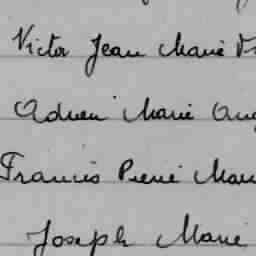 Victor Jean Marie
Adrien Marie Aug
Francis Pierre Mari
Joseph Marie